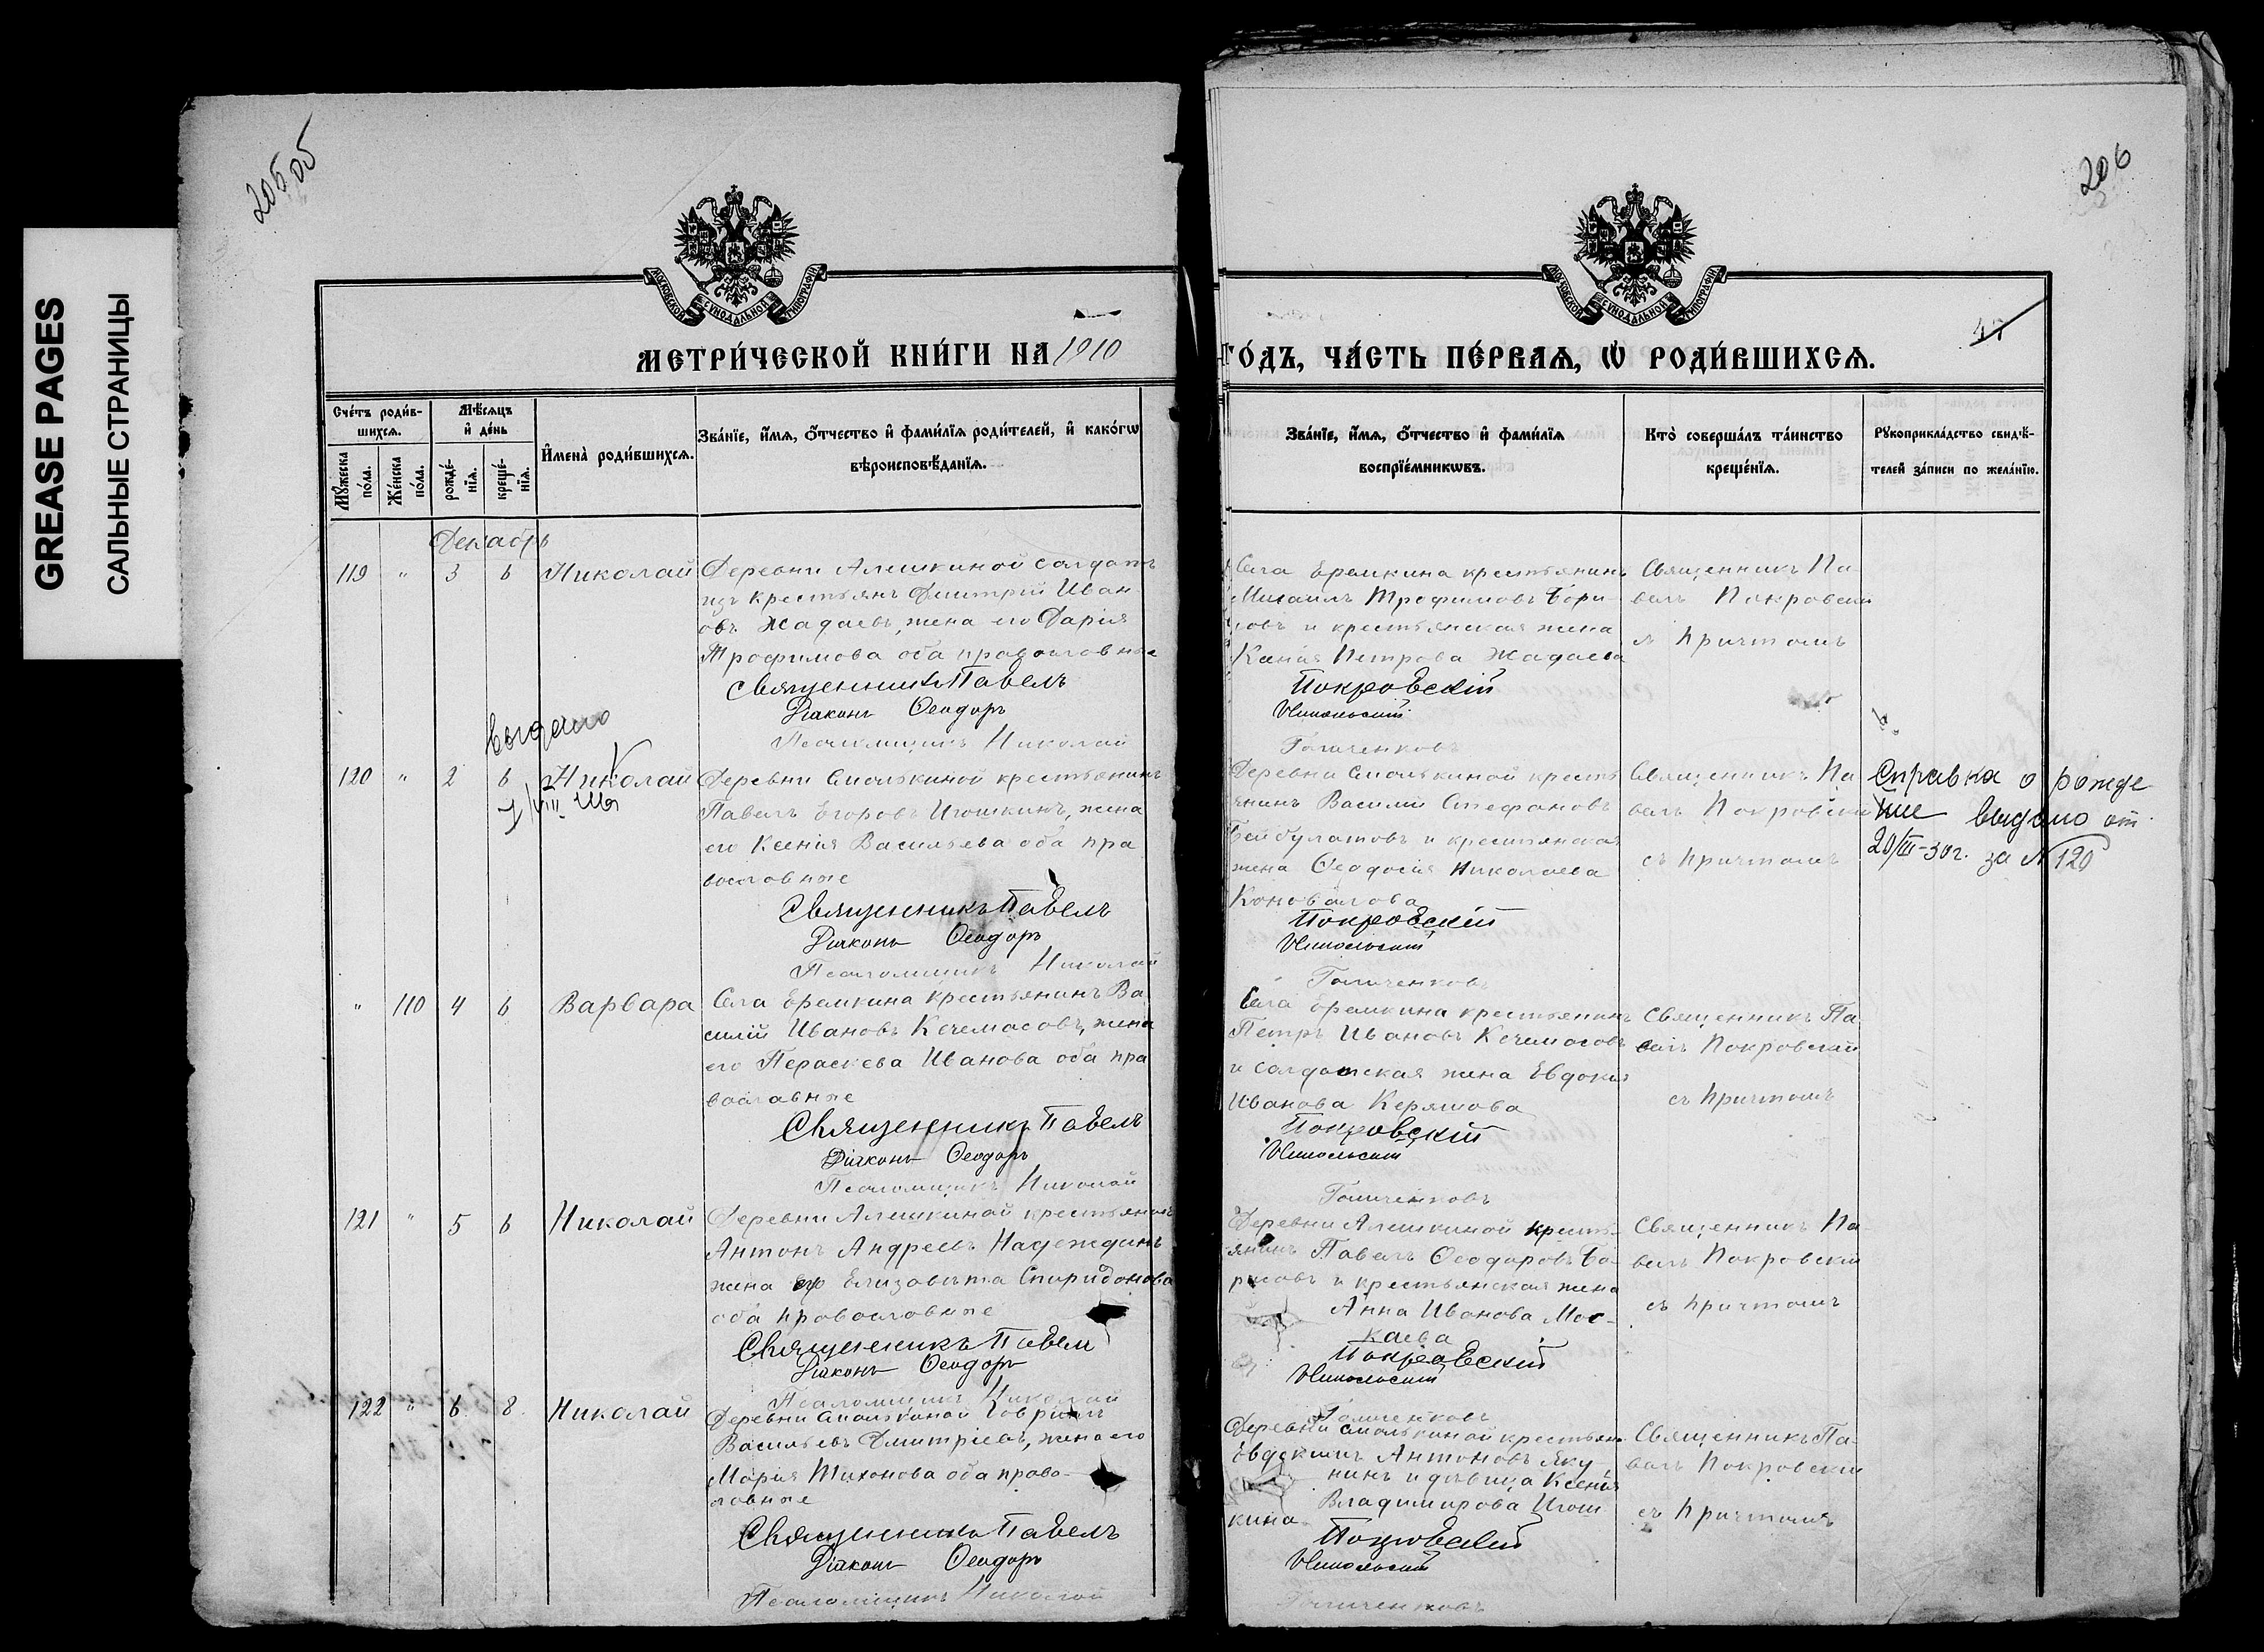 GREASE PAGES
САЛЬНЫЕ СТРАНИЦЫ
205 об
206
47
МОСКОВСКОЙ СУНОДАЛЬНОЙ ТИПОГРАФІИ
МОСКОВСКОЙ СУНОДАЛЬНОЙ ТИПОГРАФІИ
МЕТРИ́ЧЕСКОЙ КНИ́ГИ НА 1910
ГО́ДЪ, ЧА́СТЬ ПЕ́РВАѦ, Ѡ҆ РОДИ́ВШИХСѦ.
Сче́тъ роди́в-
шихсѧ.
Мѣ́сѧцъ
и҆ де́нь
Мꙋ́жеска
по́ла.
Же́нска
по́ла.
рожде́-
нїѧ.
креще́-
нїѧ.
И҆мена̀ роди́вшихсѧ.
Зва́нїе, и҆́мѧ, ѻ҆́тчество и҆ фами́лїѧ роди́телей, и҆ како́гѡ
вѣроисповѣ́данїѧ.
Зва́нїе, и҆́мѧ, ѻ҆́тчество и҆ фами́лїѧ
воспрїе́мникѡвъ.
Кто̀ соверша́лъ та́инство
креще́нїѧ.
Рꙋкоприкла́дство свидѣ́-
телей за́писи по жела́нїю.
Декабрь
119 " 3 6 Николай
Деревни Алешкиной солдатъ
изъ крестьянъ Дмитрій Иван
овъ Жадаевъ, жена его Дарія
Трофимова оба православные
Священникъ Павелъ
Діаконъ Ѳеодоръ
Псаломщикъ Николай
Села Еремкина крестьянинъ
Михаилъ Трофимовъ Бори
совъ и крестьянская жена
Ксенія Петрова Жадаева
Покровскій
Никольскій
Голиченковъ
Священникъ Па
велъ Покровскій
съ причтомъ
выдано
120 " 2 6 Николай
7/VIII
Деревни Смолькиной крестьянинъ
Павелъ Егоровъ Игошкинъ, жена
его Ксенія Васильева оба пра
вославные
Священникъ Павелъ
Діаконъ Ѳеодоръ
Псаломщикъ Николай
Деревни Смолькиной кресть
янинъ Василій Стефановъ
Бейбулатовъ и крестьянская
жена Ѳеодосія Николаева
Коновалова
Покровскій
Никольскій
Голиченковъ
Священникъ Па
велъ Покровскій
съ причтомъ
Справка о рожде
ние выдано от
20/III-30г. за N 120
" 110 4 6 Варвара
Села Еремкина крестьянинъ Ва
силій Ивановъ Кечемасовъ, жена
его Параскева Иванова оба пра
вославные
Священникъ Павелъ
Діаконъ Ѳеодоръ
Псаломщикъ Николай
Села Еремкина крестьянинъ
Петръ Ивановъ Кечемасовъ
и солдатская жена Евдокія
Иванова Керяшова
Покровскій
Никольскій
Голиченковъ
Священникъ Па
велъ Покровскій
съ причтомъ
121 " 5 6 Николай
Деревни Алешкиной крестьянинъ
Антонъ Андреевъ Надеждинъ
жена его Елизавета Спиридонова
оба православные
Священникъ Павелъ
Діаконъ Ѳеодоръ
Псаломщикъ Николай
Деревни Алешкиной кресть-
янинъ Павелъ Ѳеодоровъ Бо-
рисовъ и крестьянская жена
Анна Иванова Мос-
каева
Покровскій
Никольскій
Голиченковъ
Священникъ Па-
велъ Покровскій
съ причтомъ
122 " 6 8 Николай
Деревни Смолькиной Гавріилъ
Васильевъ Дмитріевъ, жена его
Марія Тихонова оба право-
славные
Священникъ Павелъ
Діаконъ Ѳеодоръ
Псаломщикъ Николай
Деревни Смолькиной крестьян-
Евдокимъ Антоновъ Яку
нинъ и дѣвица Ксенія
Владимирова Игош
кина
Покровскій
Никольскій
Голиченковъ
Священникъ Па-
велъ Покровскій
съ причтомъ